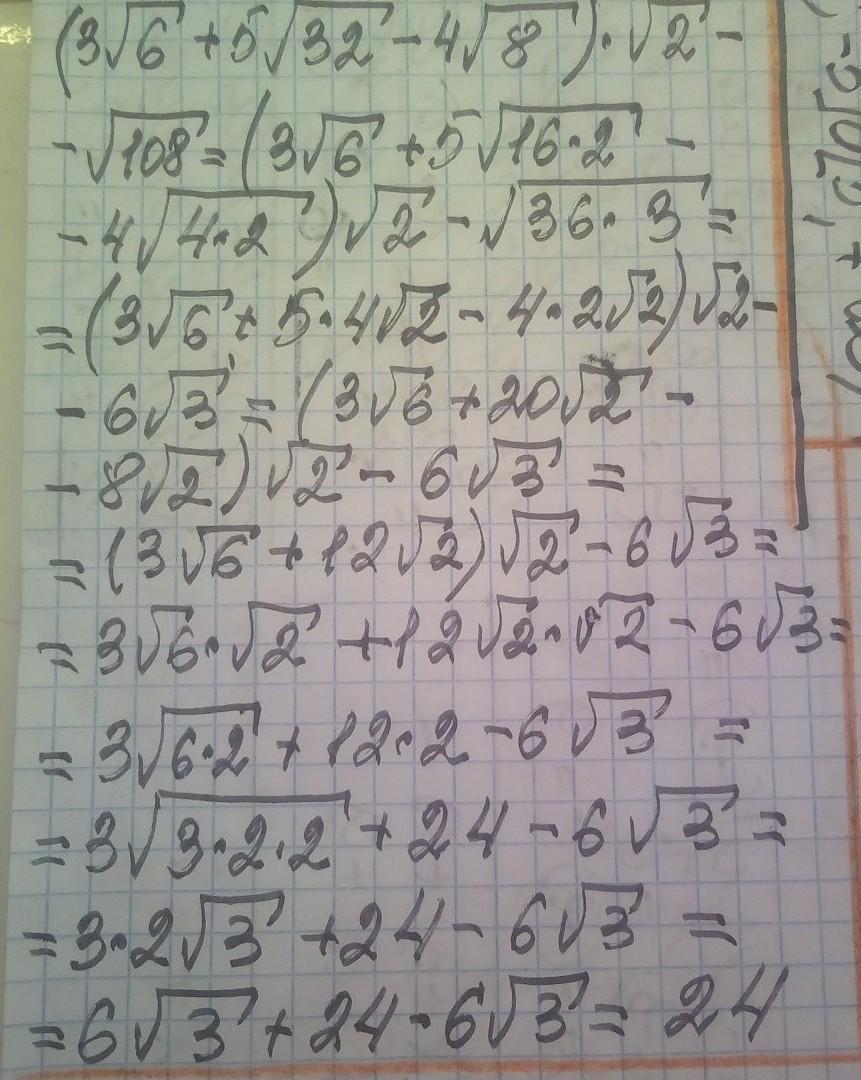 (3√6 + 5√32 - 4√8)·√2 -
- √108 = (3√6 + 5√16·2 -
- 4√4·2)√2 - √36·3 =
= (3√6 + 5·4√2 - 4·2√2)√2 -
- 6√3 = (3√6 + 20√2 -
- 8√2)√2 - 6√3 =
= (3√6 + 12√2)√2 - 6√3 =
= 3√6·√2 + 12√2·√2 - 6√3 =
= 3√6·2 + 12·2 - 6√3 =
= 3√3·2·2 + 24 - 6√3 =
= 3·2√3 + 24 - 6√3 =
= 6√3 + 24 - 6√3 = 24